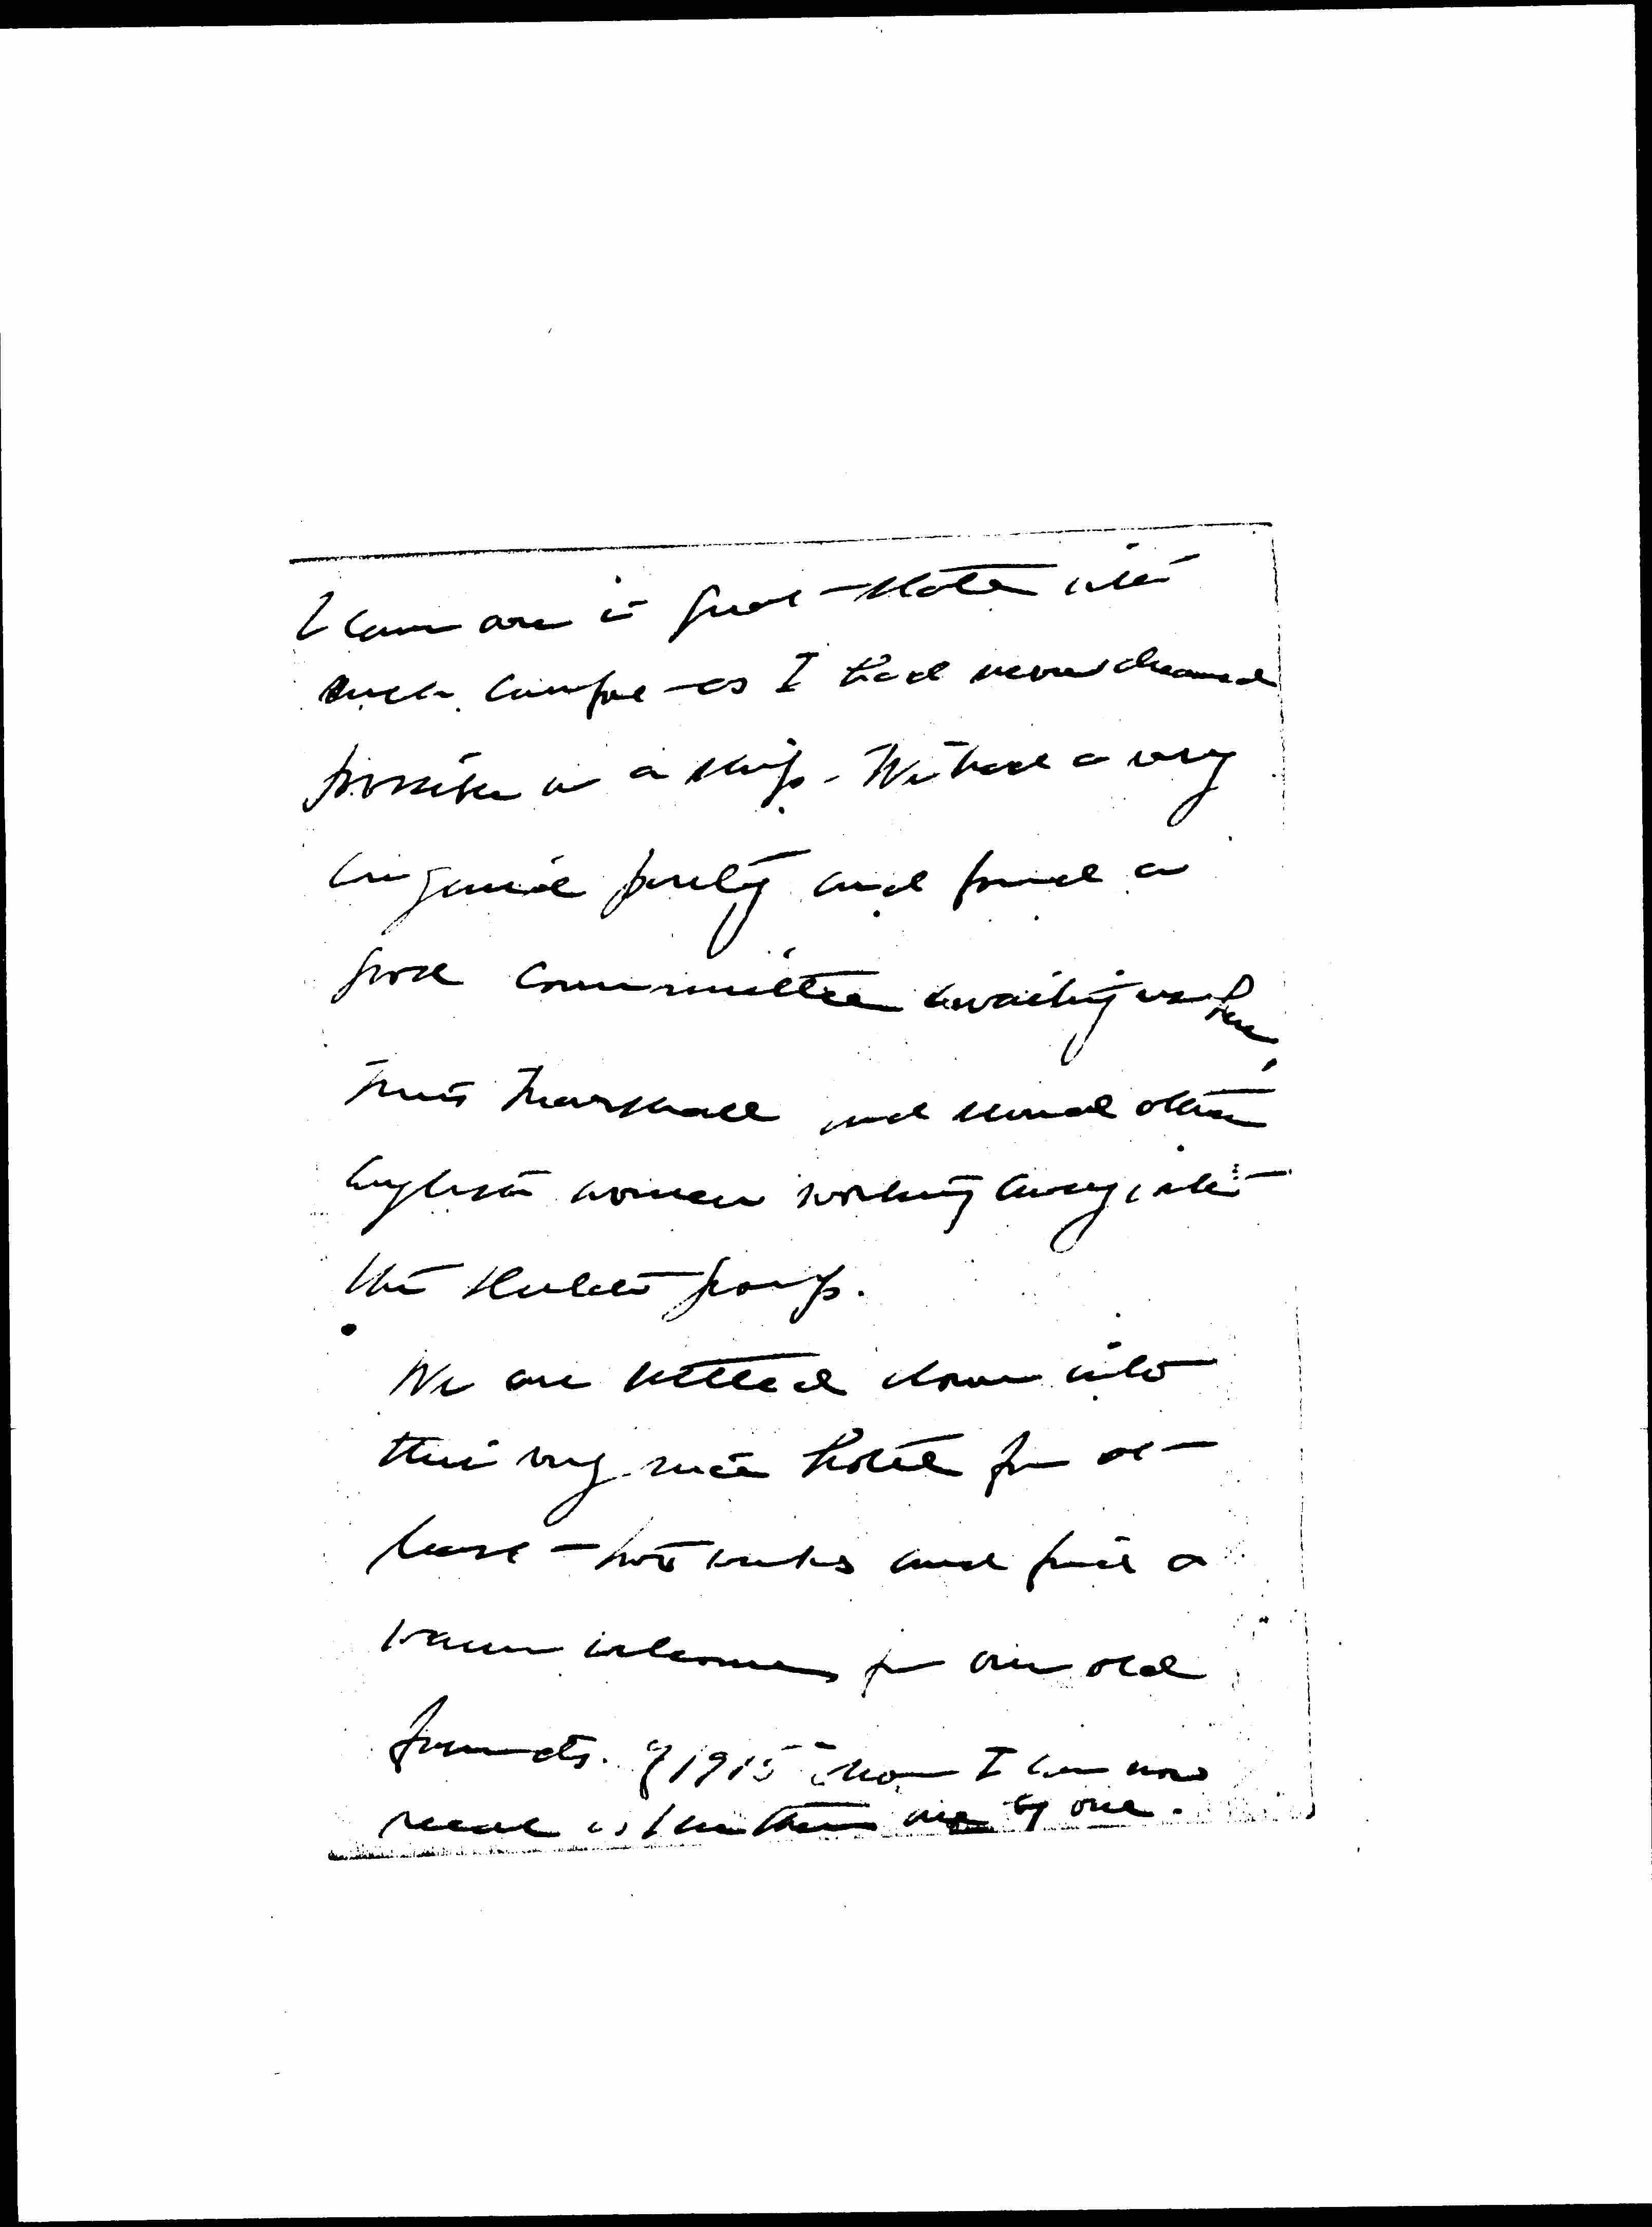 I came over in great state with
such comfort as I had never dreamed
possible in a ship. We have a very
congenial party and found a
good committee awaiting us here,
Miss Marshall and several other
English women working away with
the Dublin group.
We are settled down into
this very nice hotel for at
least two weeks and find a
warm welcome from our old
friends of 1915 whom I can now
recall as I see them one by one.